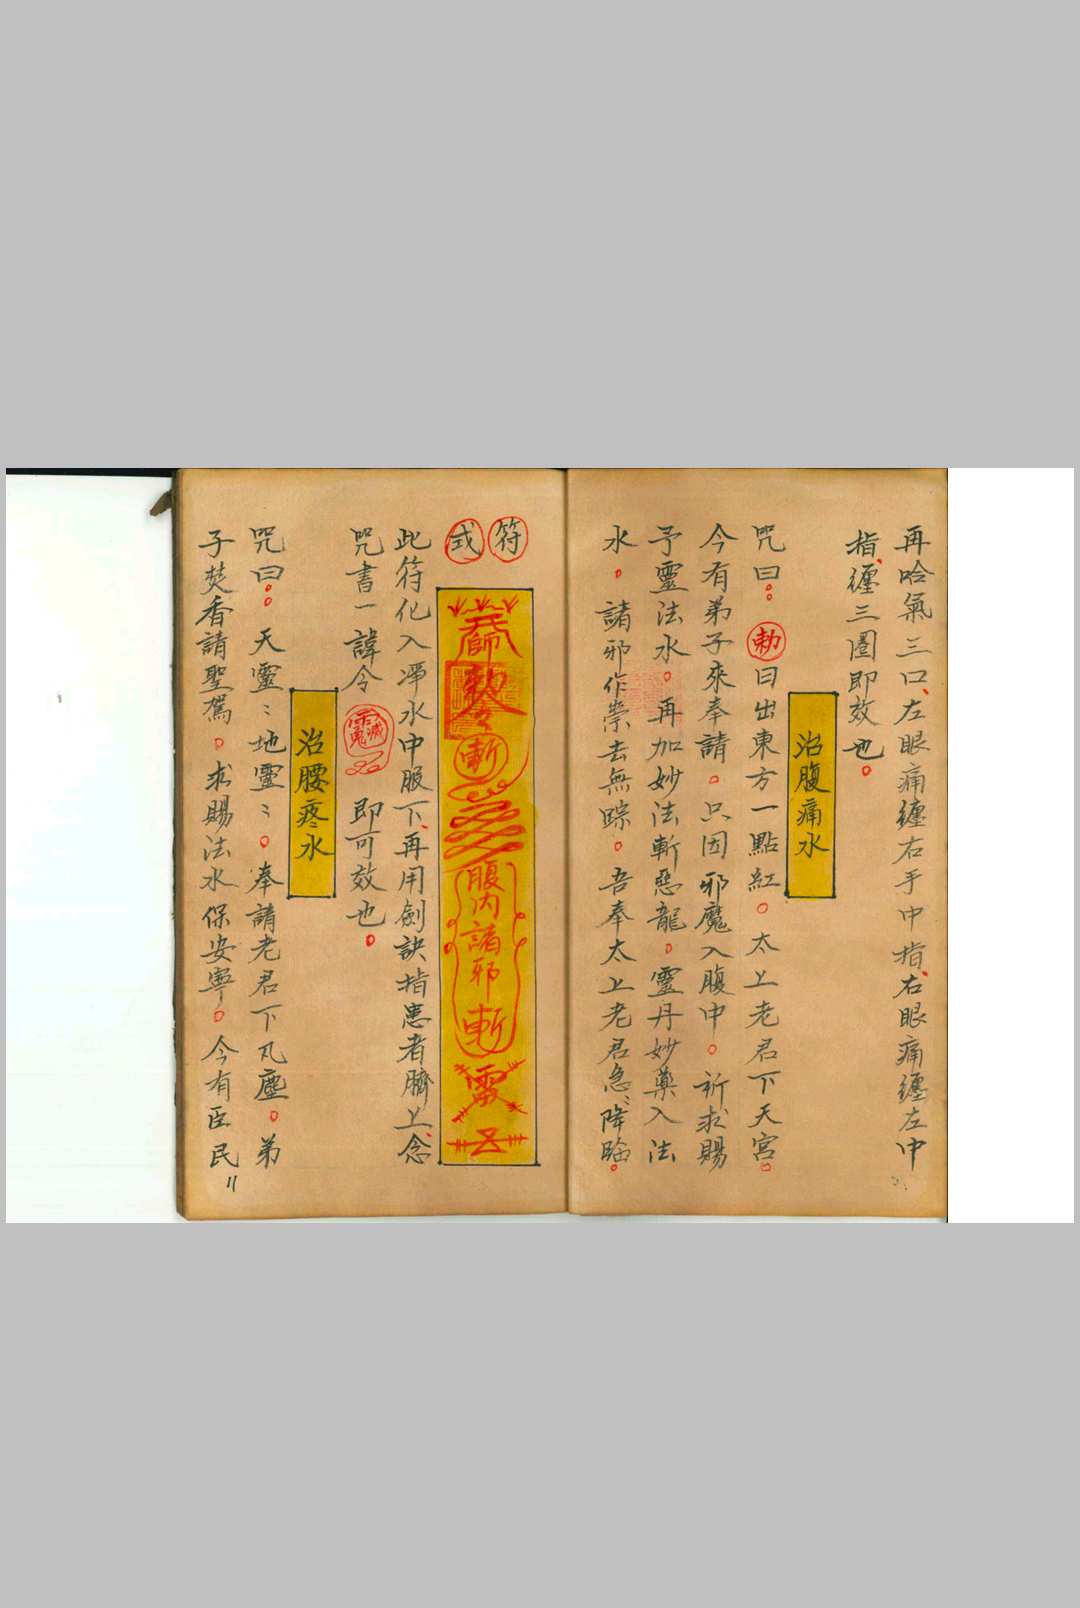 再哈氣三口、左眼痛纏右手中指、右眼痛纏左中
指、纏三圈即效也。
治腹痛水
咒曰：勅曰出東方一點紅。太上老君下天宮。
今有弟子來奉請。只因邪魔入腹中。祈求賜
予靈法水。再加妙法斬惡龍。靈丹妙藥入法
水。諸邪作祟去無踪。吾奉太上老君急、降臨。
符式
勅令
斬
腹内諸邪斬
此符化入淨水中服下、再用劍訣指患者臍上、念
咒書一諱令
滅
即可效也。
治腰疼水
咒曰：天靈：地靈：。奉請老君下凡塵。弟
子焚香請聖駕。求賜法水保安寧。今有臣民
11